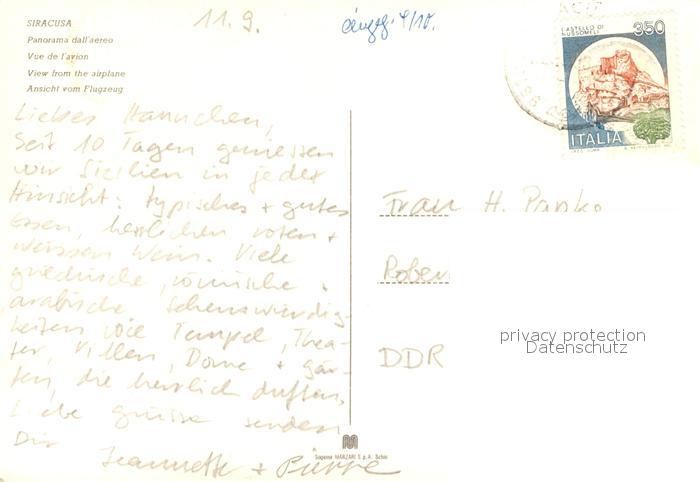 11.9.
SIRACUSA
Panorama dall'aereo
Vue de l'avion
View from the airplane
Ansicht vom Flugzeug
CASTELLO DI
MUSSOMELI
350
ITALIA
Liebes Hannchen,
Seit 10 Tagen geniessen
wir Sizilien in jeder
Hinsicht: typisches + gutes
Essen, herrlichen roten +
weissen Wein. Viele
griechische, römische,
arabische Sehenswürdig-
keiten wie Tempel, Thea-
ter, Villen, Dome + gär-
ten, die herrlich duften.
Liebe grüsse senden
Dir Jeannette + Pierre
Frau H. Panko
DDR
privacy protection
Datenschutz